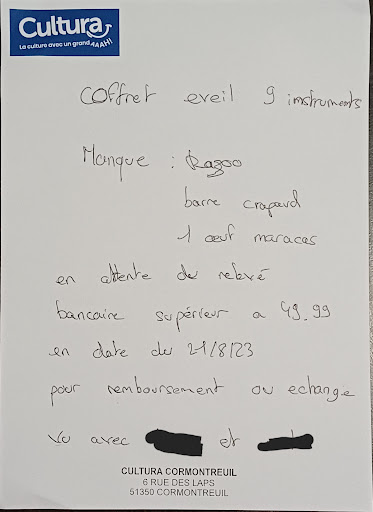 Cultura
La culture avec un grand AAAH!
Coffret eveil 9 instruments
Manque : Kazoo
barre crapaud
1 œuf maracas
en attente du relevé
bancaire supérieur a 49.99
en date du 21/8/23
pour remboursement ou echange
Vu avec et
CULTURA CORMONTREUIL
6 RUE DES LAPS
51350 CORMONTREUIL